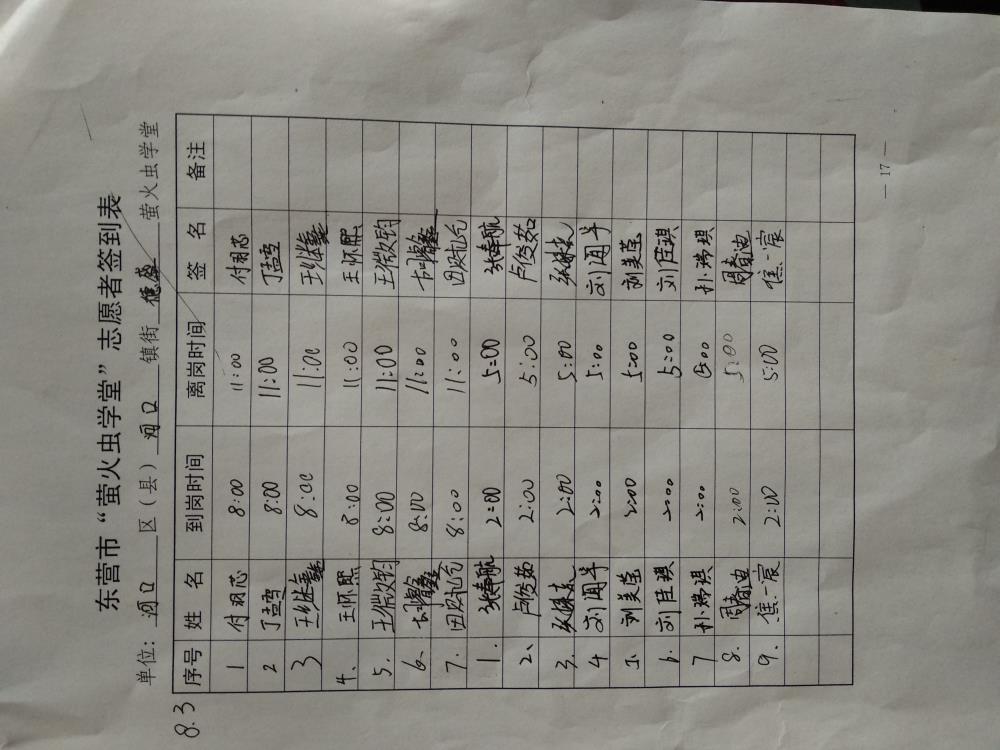 8.3
东营市“萤火虫学堂”志愿者签到表
单位: 河口 区(县) 河口 镇街 德盛 萤火虫学堂
序号 姓 名 到岗时间 离岗时间 签 名 备注
1 付羽芯 8:00 11:00 付羽芯
2 丁孟雪 8:00 11:00 丁孟雪
3 8:00 11:00
4. 王怀熙 8:00 11:00 王怀熙
5. 王微钧 8:00 11:00 王微钧
6. 8:00 11:00
7. 8:00 11:00
1. 张峰航 2:00 5:00 张峰航
2、 卢俊茹 2:00 5:00 卢俊茹
3. 2:00 5:00
4 刘闻羊 2:00 5:00 刘闻羊
5. 刘美莲 2:00 5:00 刘美莲
6. 刘佳琪 2:00 5:00 刘佳琪
7 孙瑞琪 2:00 5:00 孙瑞琪
8. 周春迪 2:00 5:00 周春迪
9. 焦一宸 2:00 5:00 焦一宸
— 17 —